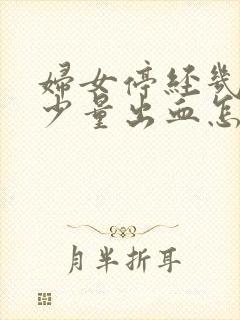 妇女停经几
少量出血怎
月半折耳